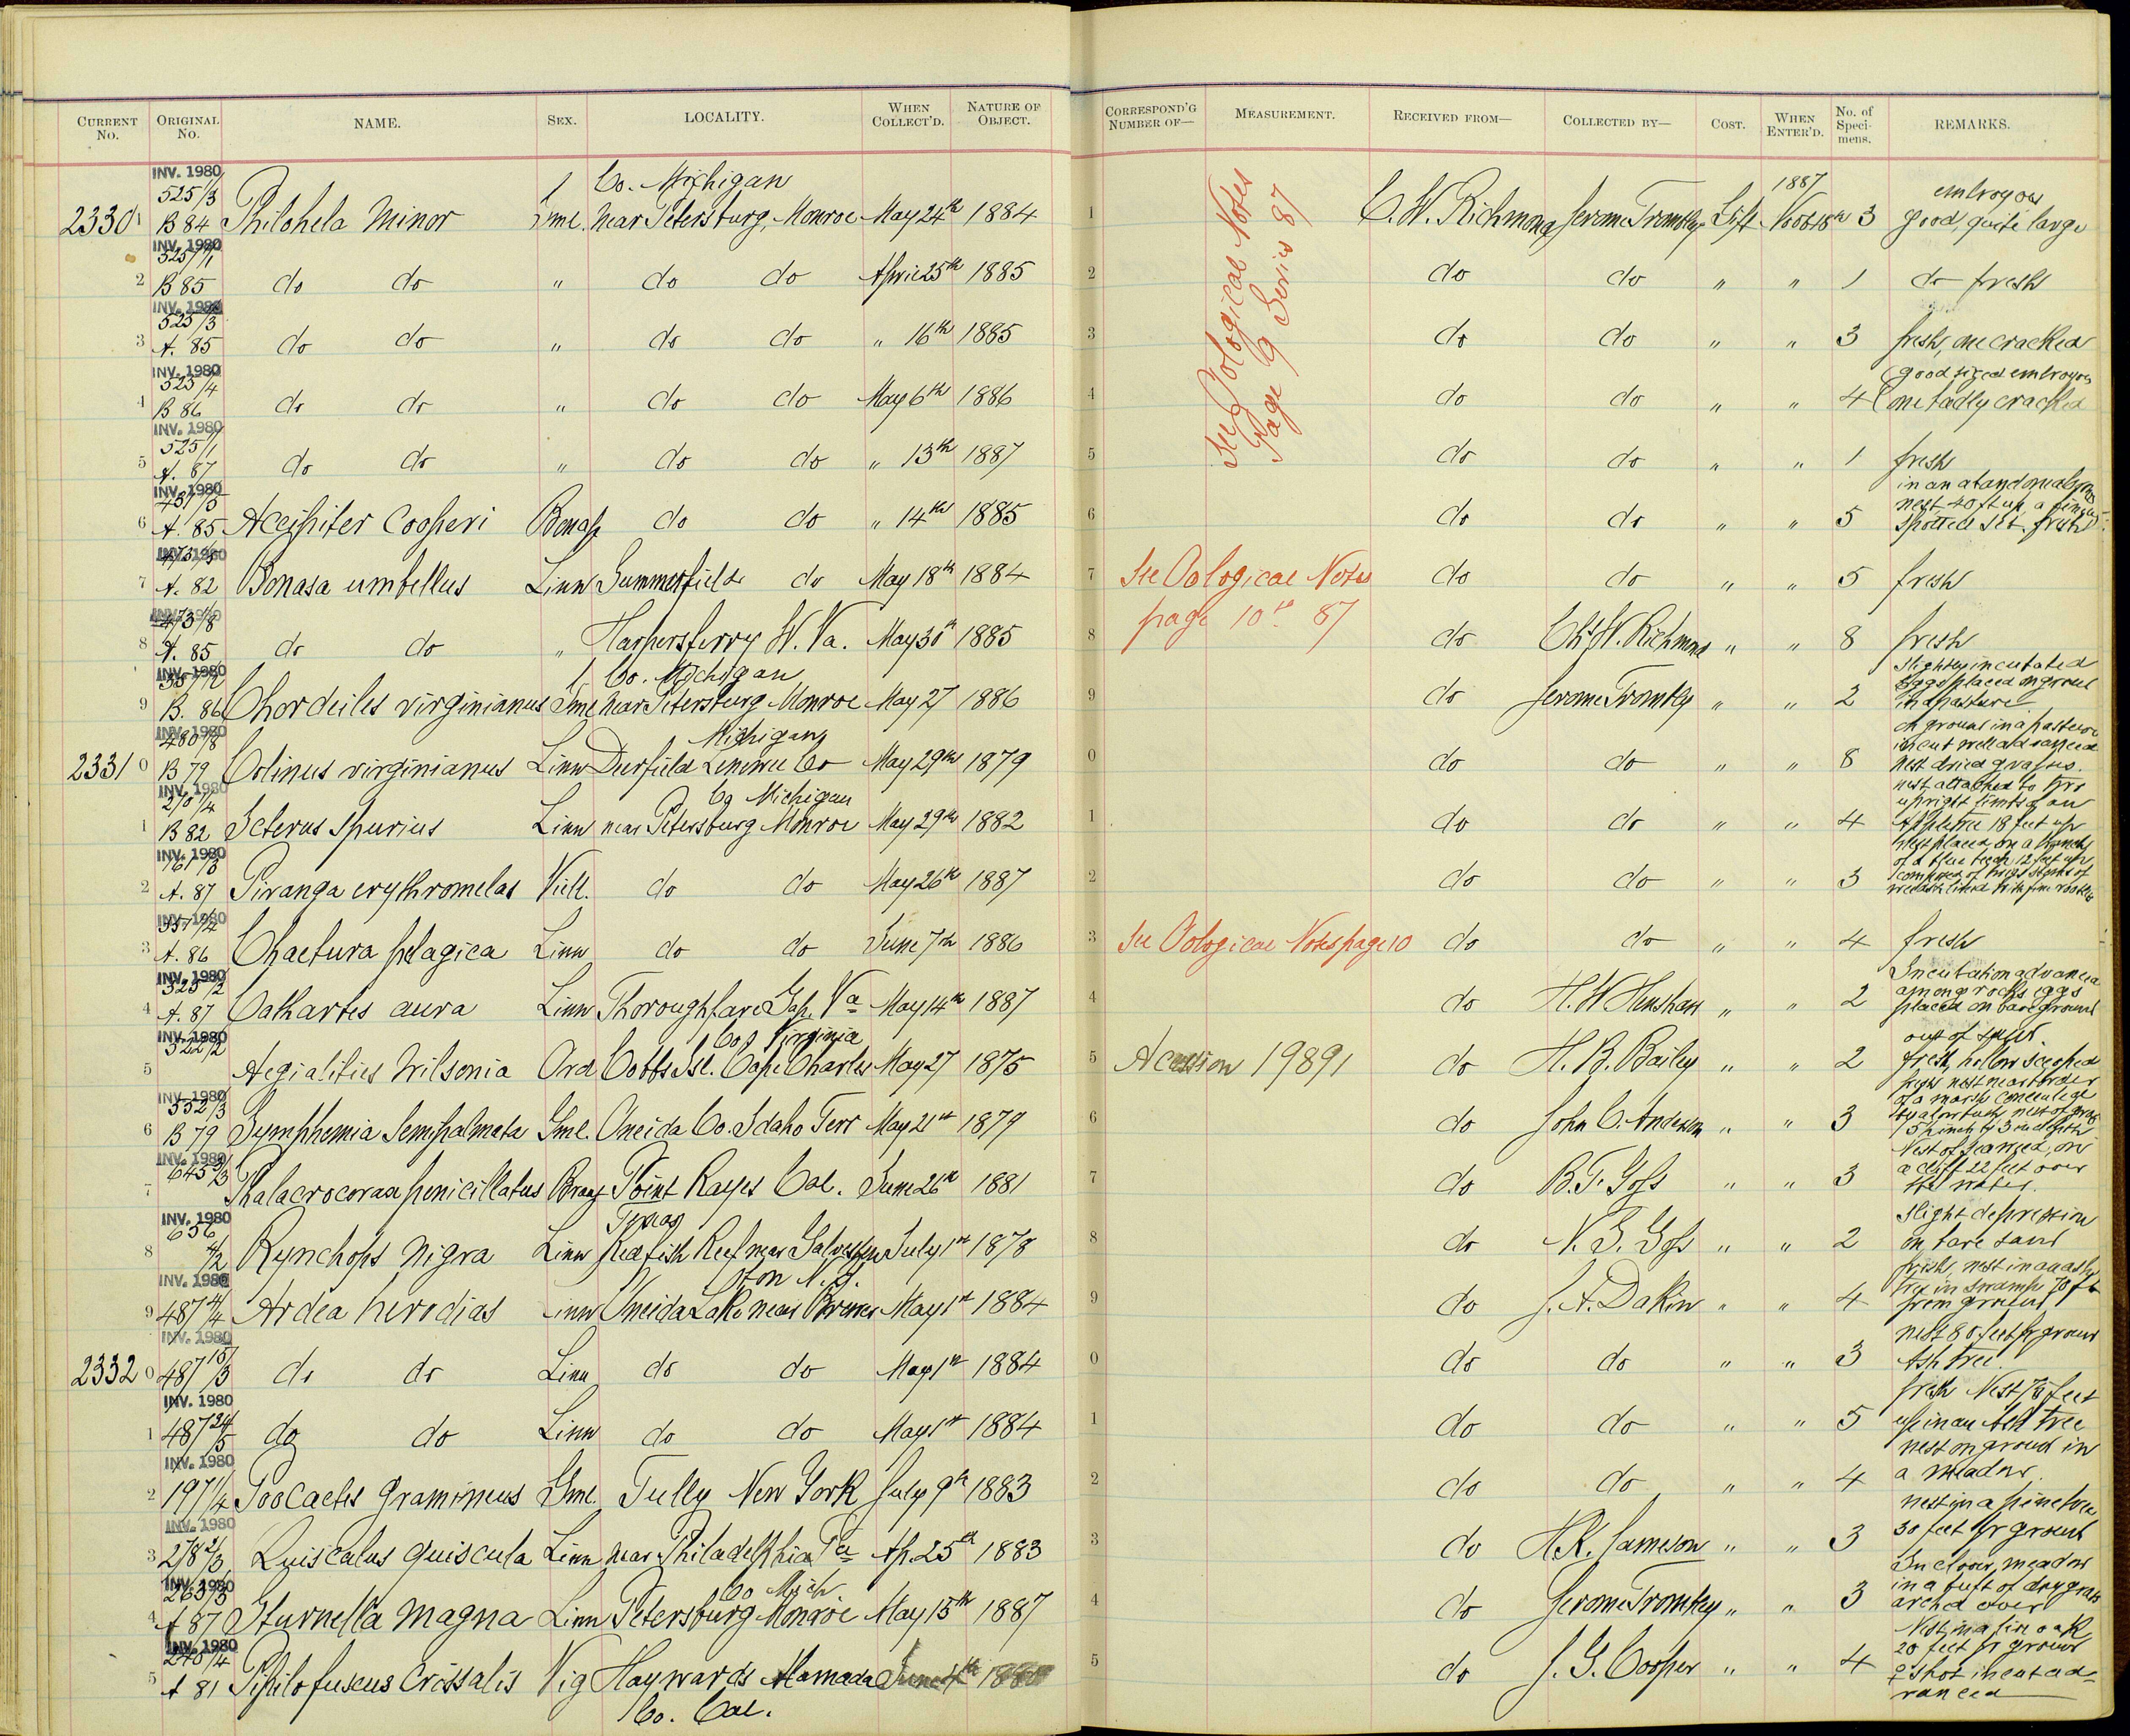 CURRENT No. ORIGINAL No. NAME. SEX. LOCALITY. WHEN COLLECT'D. NATURE OF OBJECT. CORRESPOND'G NUMBER OF— MEASUREMENT. RECEIVED FROM— COLLECTED BY— COST. WHEN ENTER'D. No. of Specimens. REMARKS.
INV. 1980
525/3 Co. Michigan 1887 embryos
23301 B 84 Philohela minor Gml. near Petersburg, Monroe May 24th 1884 1 C. W. Richmond Jerome Trombley Gift 3 good, quite large
See Oological Notes
Page 9 Series 87
INV. 1980
525/1
2 B 85 do do " do do April 25th 1885 2 do do " " 1 do fresh
INV. 1980
525/3
3 A. 85 do do " do do " 16th 1885 3 do do " " 3 fresh, one cracked
INV. 1980
525/4 good sized embryos
4 B 86 do do " do do May 6th 1886 4 do do " " 4 one badly cracked
INV. 1980
525/1
5 A. 87 do do " do do " 13th 1887 5 do do " " 1 fresh
INV. 1980
in an abandoned
431/5 nest 40 ft up, a
6 A. 85 Accipiter Cooperi Bonap do do " 14th 1885 6 do do " " 5 spotted set. fresh
INV. 1980
473/5
7 A. 82 Bonasa umbellus Linn Summerfield do May 18th 1884 7 See Oological Notes do do " " 5 fresh
page 10 87
INV. 1980
473/8
8 A. 85 do do " Harpersferry W. Va. May 30th 1885 8 do Chs W. Richmond " " 8 fresh
INV. 1980
Slightly incubated
Co. Michigan Eggs placed on ground
9 B. 86 Chordeiles virginianus Gml near Petersburg Monroe May 27 1886 9 do Jerome Trombley " " 2 in a pasture
INV. 1980
on ground in a pasture
480/8 Michigan incubt well advanced
23310 B 79 Colinus virginianus Linn Deerfield Lenawee Co May 29th 1879 0 do do " " 8 nest dried grasses.
INV. 1980
nest attached to two
270/4 Co Michigan upright limbs of an
1 B 82 Icterus spurius Linn near Petersburg Monroe May 29th 1882 1 do do " " 4 Apple tree 18 feet up
INV. 1980
Nest placed on a branch
161/3 of a blue beech 12 feet up
2 A. 87 Piranga erythromelas Viell. do do May 26th 1887 2 do do " " 3 composed of lined with fine rootlets
INV. 1980
351/4
3 A. 86 Chaetura pelagica Linn do do June 7th 1886 3 See Oological Notes page 10 do do " " 4 fresh
INV. 1980
Incubation advanced
525/2 among rocks eggs
4 A. 87 Cathartes aura Linn Thoroughfare Gap, Va May 14th 1887 4 do H. W Henshaw " " 2 placed on bare ground
INV. 1980
522/2 Co, Virginia out of sight.
5 Aegialities Wilsonia Ord Cobbs Isl. Cape Charles May 27 1875 5 Accession 19891 do H. B. Bailey " " 2 fresh, hollow scooped
INV. 1980
fresh nest near border
552/3 of a marsh
6 B 79 Symphemia Semipalmata Gml. Oneida Co. Idaho Terr May 21st 1879 6 do John C. Anderson " " 3
INV. 1980
Nest of seaweed, on
645/3 a cliff 22 feet over
7 Phalacrocorax penicillatus Brandt Point Rayes Cal. June 26th 1881 7 do B. F. Goss " " 3 the water.
INV. 1980
656 Texas Slight depression
8 4/2 Rynchops nigra Linn Redfish Reef near Galveston July 1st 1878 8 do N. S. Goss " " 2 on bare sand
INV. 1980
ton N.Y. fresh, nest in an ash
9 487 4/4 Ardea herodias Linn Oneida Lake near Brewer May 1st 1884 9 do J. A. Dakin " " 4 tree in swamp 70 ft from ground
INV. 1980
nest 80 feet fr ground
23320 487 15/3 do do Linn do do May 1st 1884 0 do do " " 3 Ash tree.
INV. 1980
fresh Nest 75 feet
1 487 24/5 do do Linn do do May 1st 1884 1 do do " " 5 up in an Ash tree
INV. 1980
nest on ground in
2 197 1/4 Poocaetes gramineus Gml. Tully New York July 9th 1883 2 do do " " 4 a meadow.
INV. 1980
nest in a pine tree
3 278 2/3 Quiscalus quiscula Linn near Philadelphia Pa Ap. 25th 1883 3 do H. K. Jameson " " 3 30 feet fr ground
INV. 1980
In clover meadow
263/3 Co Mich in a tuft of dry grass
4 A 87 Sturnella magna Linn Petersburg Monroe May 15th 1887 4 do Jerome Trombley " " 3 arched over
INV. 1980
Nest, in a live oak
240/4 20 feet fr ground
5 A 81 Pipilo fuscus Crissalis Vig Haywards Alamada June 4th 5 do J. G. Cooper " " 4 ♀ shot incubt ad-
Co. Cal. vanced